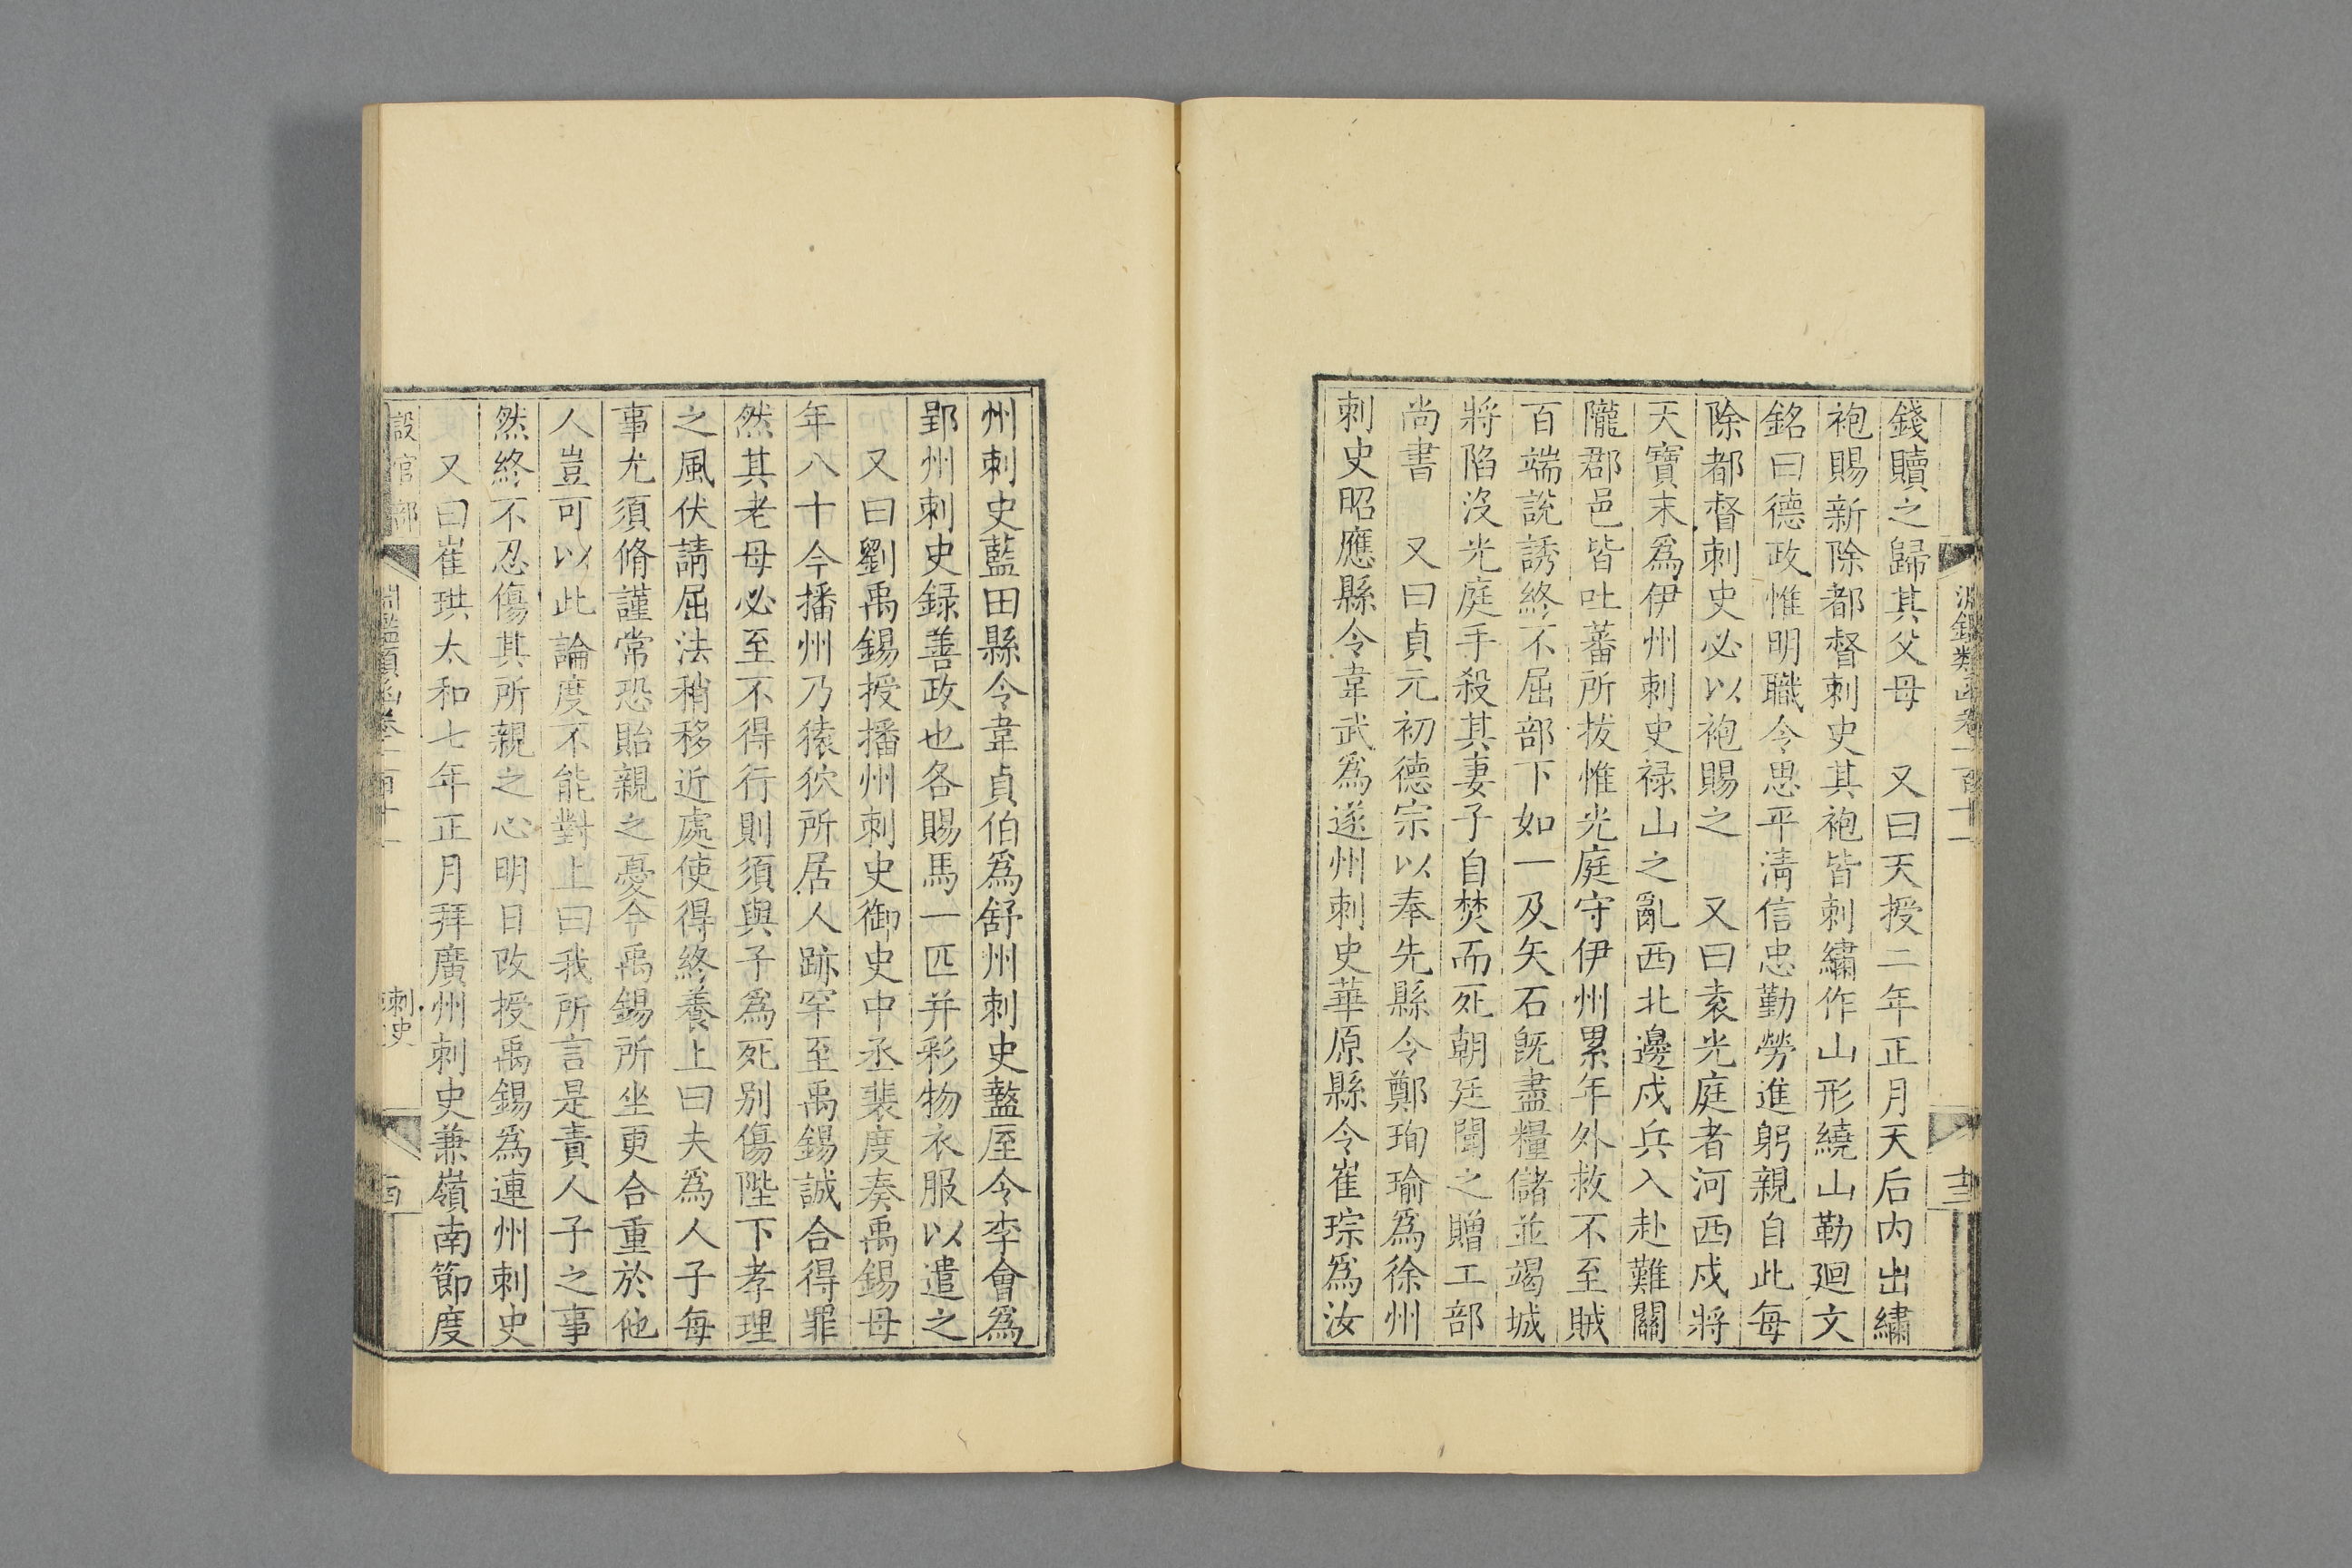 淵鑑類函卷一百十一
錢贖之歸其父母　又曰天授二年正月天后内出繡
袍賜新除都督刺史其袍皆刺繡作山形繞山勒廻文
銘曰德政惟明職令思平淸信忠勤勞進躬親自此每
除都督刺史必以袍賜之　又曰袁光庭者河西戍將
天寶末爲伊州刺史禄山之亂西北邊戍兵入赴難關
隴郡邑皆吐蕃所拔惟光庭守伊州累年外救不至賊
百端說誘終不屈部下如一及矢石旣盡糧儲並竭城
將陷沒光庭手殺其妻子自焚而死朝廷聞之贈工部
尚書　又曰貞元初德宗以奉先縣令鄭珣瑜爲徐州
刺史昭應縣令韋武爲遂州刺史華原縣令崔琮爲汝
州刺史藍田縣令韋貞伯爲舒州刺史盩厔令李會爲
郢州刺史録善政也各賜馬一匹并彩物衣服以遣之
又曰劉禹錫授播州刺史御史中丞裴度奏禹錫母
年八十今播州乃猿狖所居人跡罕至禹錫誠合得罪
然其老母必至不得行則須與子爲死别傷陛下孝理
之風伏請屈法稍移近處使得終養上曰夫爲人子每
事尤須脩謹常恐貽親之憂今禹錫所坐更合重於他
人豈可以此論度不能對上曰我所言是責人子之事
然終不忍傷其所親之心明日改授禹錫爲連州刺史
又曰崔珙太和七年正月拜廣州刺史兼嶺南節度
設官部　淵鑑類函卷一百十一　刺史